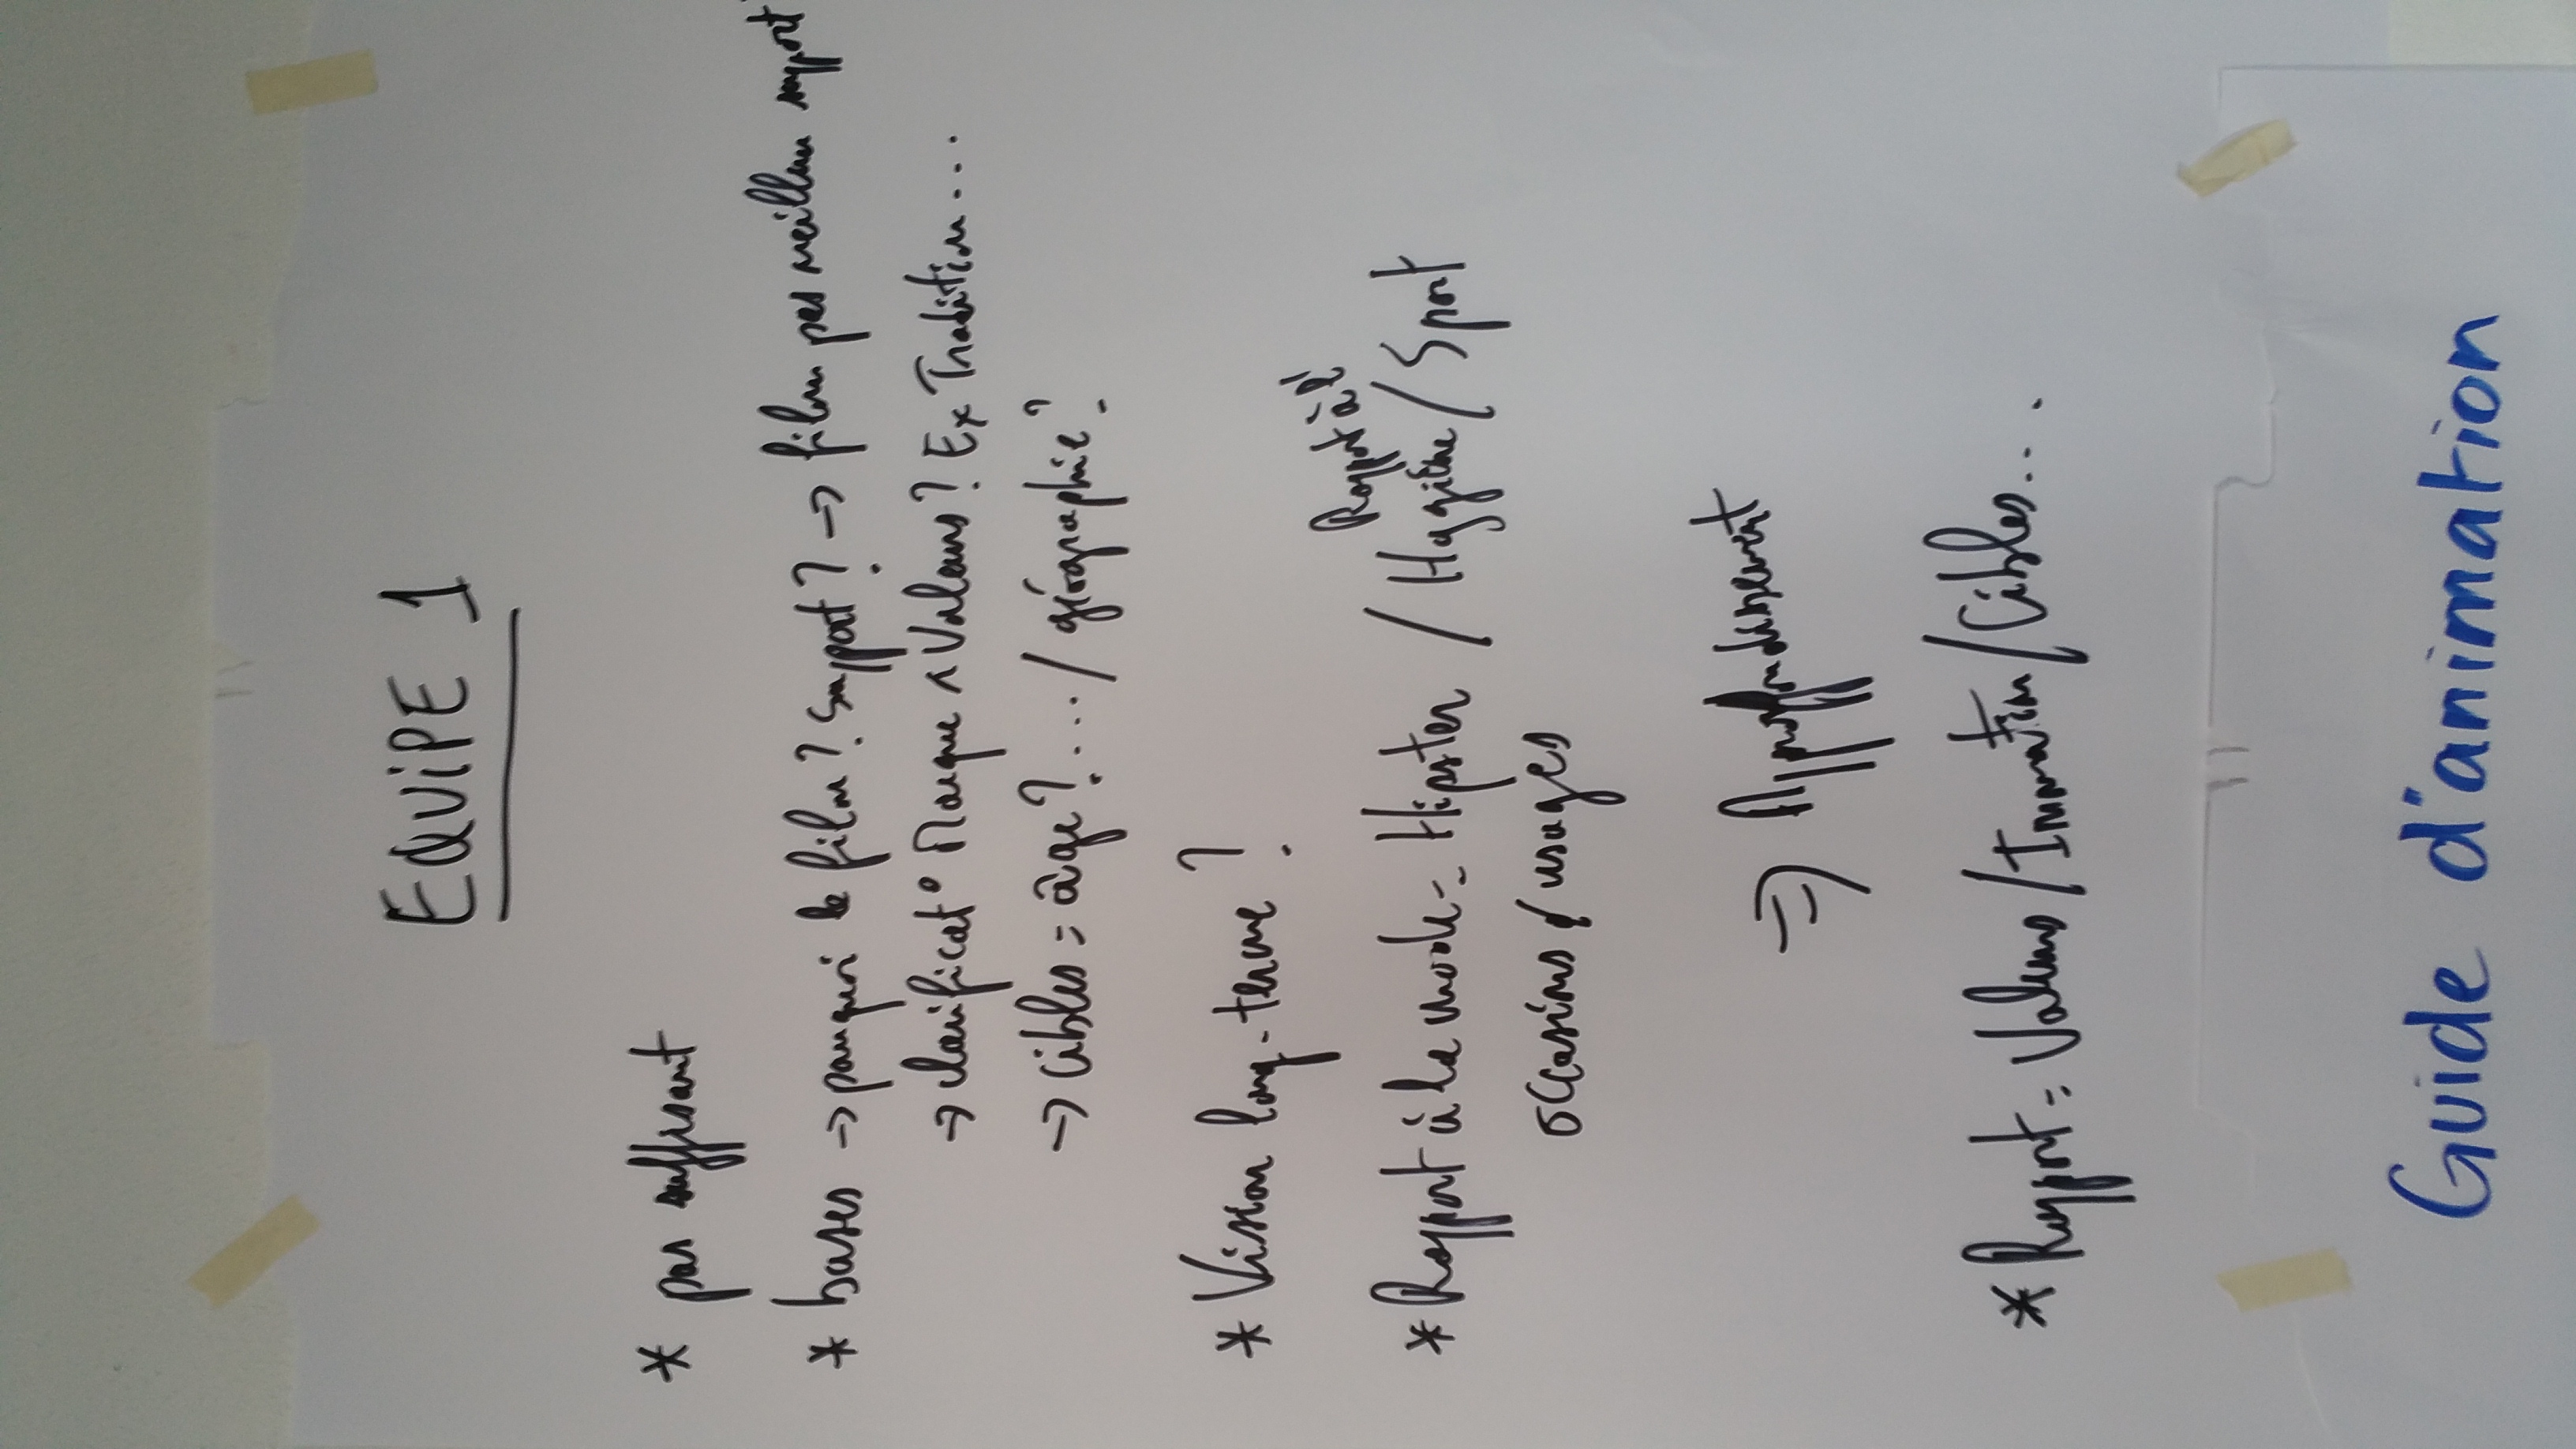 EQUIPE 1
* pas suffisant
* bases → pourquoi le film ? Support ? → film pas meilleur support
→ clarificat° Marque ^ Valeurs ? Ex Tradition...
→ Cibles = âge ? .... / géographie ?
* Vision long-terme ?
Rapport à l'
* Rapport à la mode = Hipster / Hygiène / Sport
occasions / usages
⇒ Approfondissement
* Rapport = Valeurs / Innovation / Cibles....
Guide d'animation